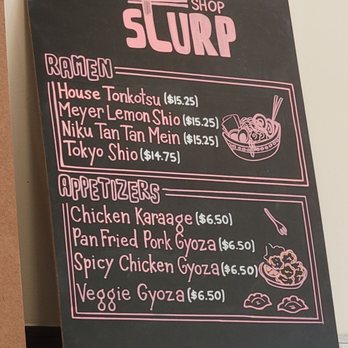 SHOP
SLURP
RAMEN
House Tonkotsu ($15.25)
Meyer Lemon Shio ($15.25)
Niku Tan Tan Mein ($15.25)
Tokyo Shio ($14.75)
APPETIZERS
Chicken Karaage ($6.50)
Pan Fried Pork Gyoza ($6.50)
Spicy Chicken Gyoza ($6.50)
Veggie Gyoza ($6.50)